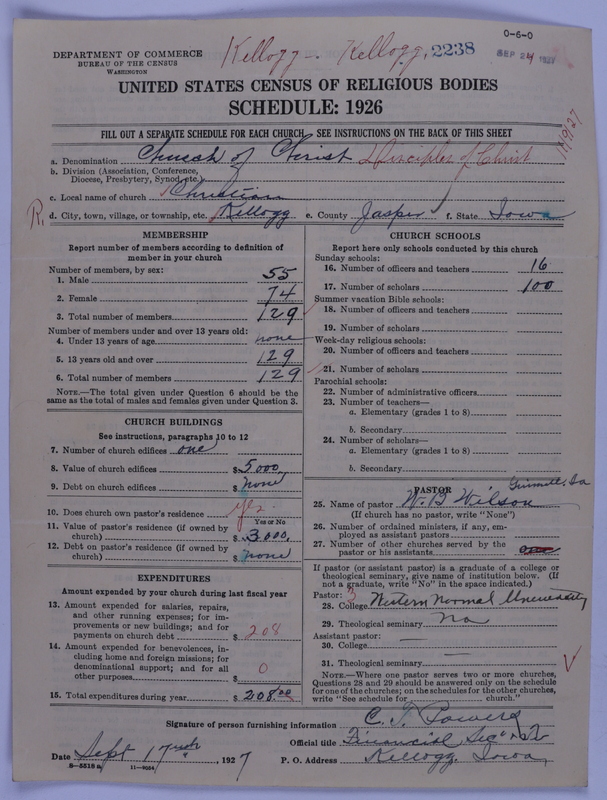 0-6-0
DEPARTMENT OF COMMERCE
BUREAU OF THE CENSUS
WASHINGTON
Kellogg - Kellogg, 2238
SEP 24 1927
UNITED STATES CENSUS OF RELIGIOUS BODIES
SCHEDULE: 1926
FILL OUT A SEPARATE SCHEDULE FOR EACH CHURCH. SEE INSTRUCTIONS ON THE BACK OF THIS SHEET
a. Denomination Church of Christ Disciples of Christ
b. Division (Association, Conference, Diocese, Presbytery, Synod, etc.)
c. Local name of church Christian
R. d. City, town, village, or township, etc. Kellogg e. County Jasper f. State Iowa
MEMBERSHIP
Report number of members according to definition of member in your church
Number of members, by sex:
1. Male 55
2. Female 74
3. Total number of members 129
Number of members under and over 13 years old:
4. Under 13 years of age none
5. 13 years old and over 129
6. Total number of members 129
NOTE.—The total given under Question 6 should be the same as the total of males and females given under Question 3.
CHURCH BUILDINGS
See instructions, paragraphs 10 to 12
7. Number of church edifices one
8. Value of church edifices $5,000
9. Debt on church edifices $none
10. Does church own pastor's residence yes
Yes or No
11. Value of pastor's residence (if owned by church) $3,000,
12. Debt on pastor's residence (if owned by church) $none
EXPENDITURES
Amount expended by your church during last fiscal year
13. Amount expended for salaries, repairs, and other running expenses; for improvements or new buildings; and for payments on church debt $208
14. Amount expended for benevolences, including home and foreign missions; for denominational support; and for all other purposes $0
15. Total expenditures during year $208.00
CHURCH SCHOOLS
Report here only schools conducted by this church
Sunday schools:
16. Number of officers and teachers 16
17. Number of scholars 100
Summer vacation Bible schools:
18. Number of officers and teachers
19. Number of scholars
Week-day religious schools:
20. Number of officers and teachers
21. Number of scholars
Parochial schools:
22. Number of administrative officers
23. Number of teachers—
a. Elementary (grades 1 to 8)
b. Secondary
24. Number of scholars—
a. Elementary (grades 1 to 8)
b. Secondary
PASTOR
25. Name of pastor W. B Wilson Grinnell, Ia
(If church has no pastor, write "None")
26. Number of ordained ministers, if any, employed as assistant pastors
27. Number of other churches served by the pastor or his assistants
If pastor (or assistant pastor) is a graduate of a college or theological seminary, give name of institution below. (If not a graduate, write "No" in the space indicated.)
Pastor: 3
28. College Western Normal University
29. Theological seminary No
Assistant pastor:
30. College —
31. Theological seminary —
NOTE.—Where one pastor serves two or more churches, Questions 28 and 29 should be answered only on the schedule for one of the churches; on the schedules for the other churches, write "See schedule for ______ church."
Signature of person furnishing information C. T. Powers
Official title Financial Sec
Date Sept 17 1927 P. O. Address Kellogg. Iowa,
8-5518 a 11-9034